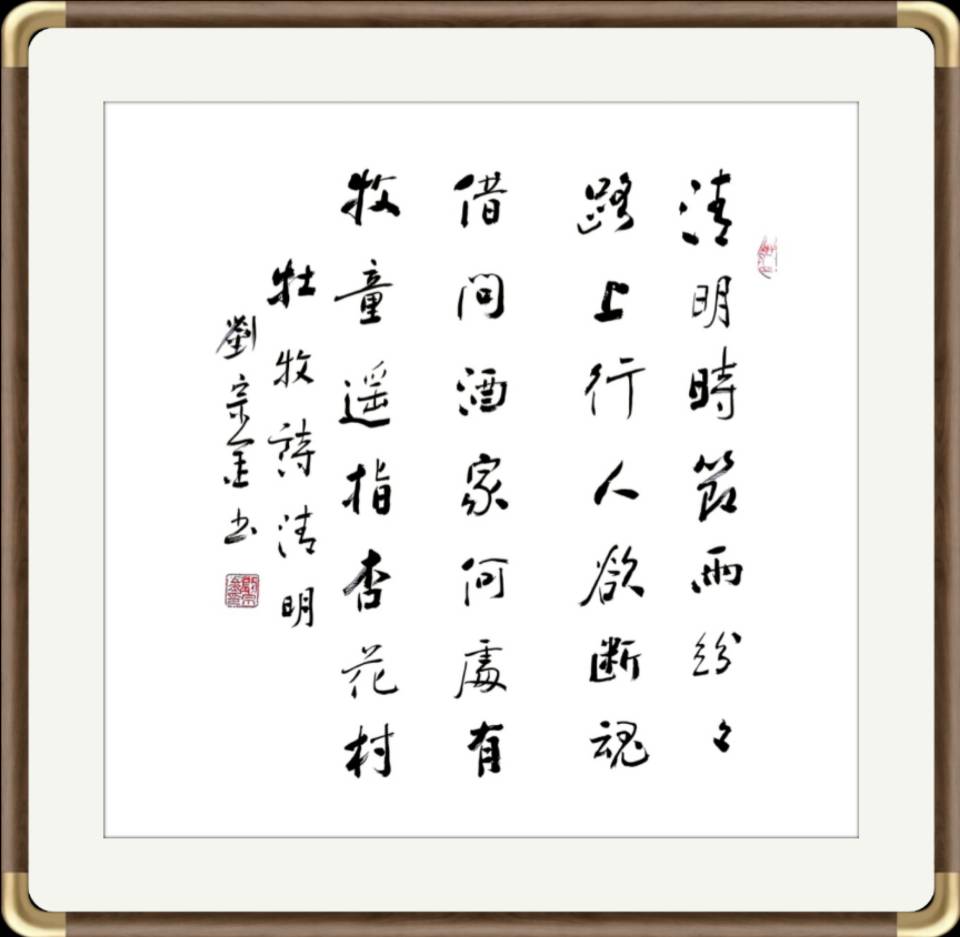 清明時節雨紛々
路上行人欲断魂
借問酒家何處有
牧童遥指杏花村
牡牧詩清明
劉宗金书